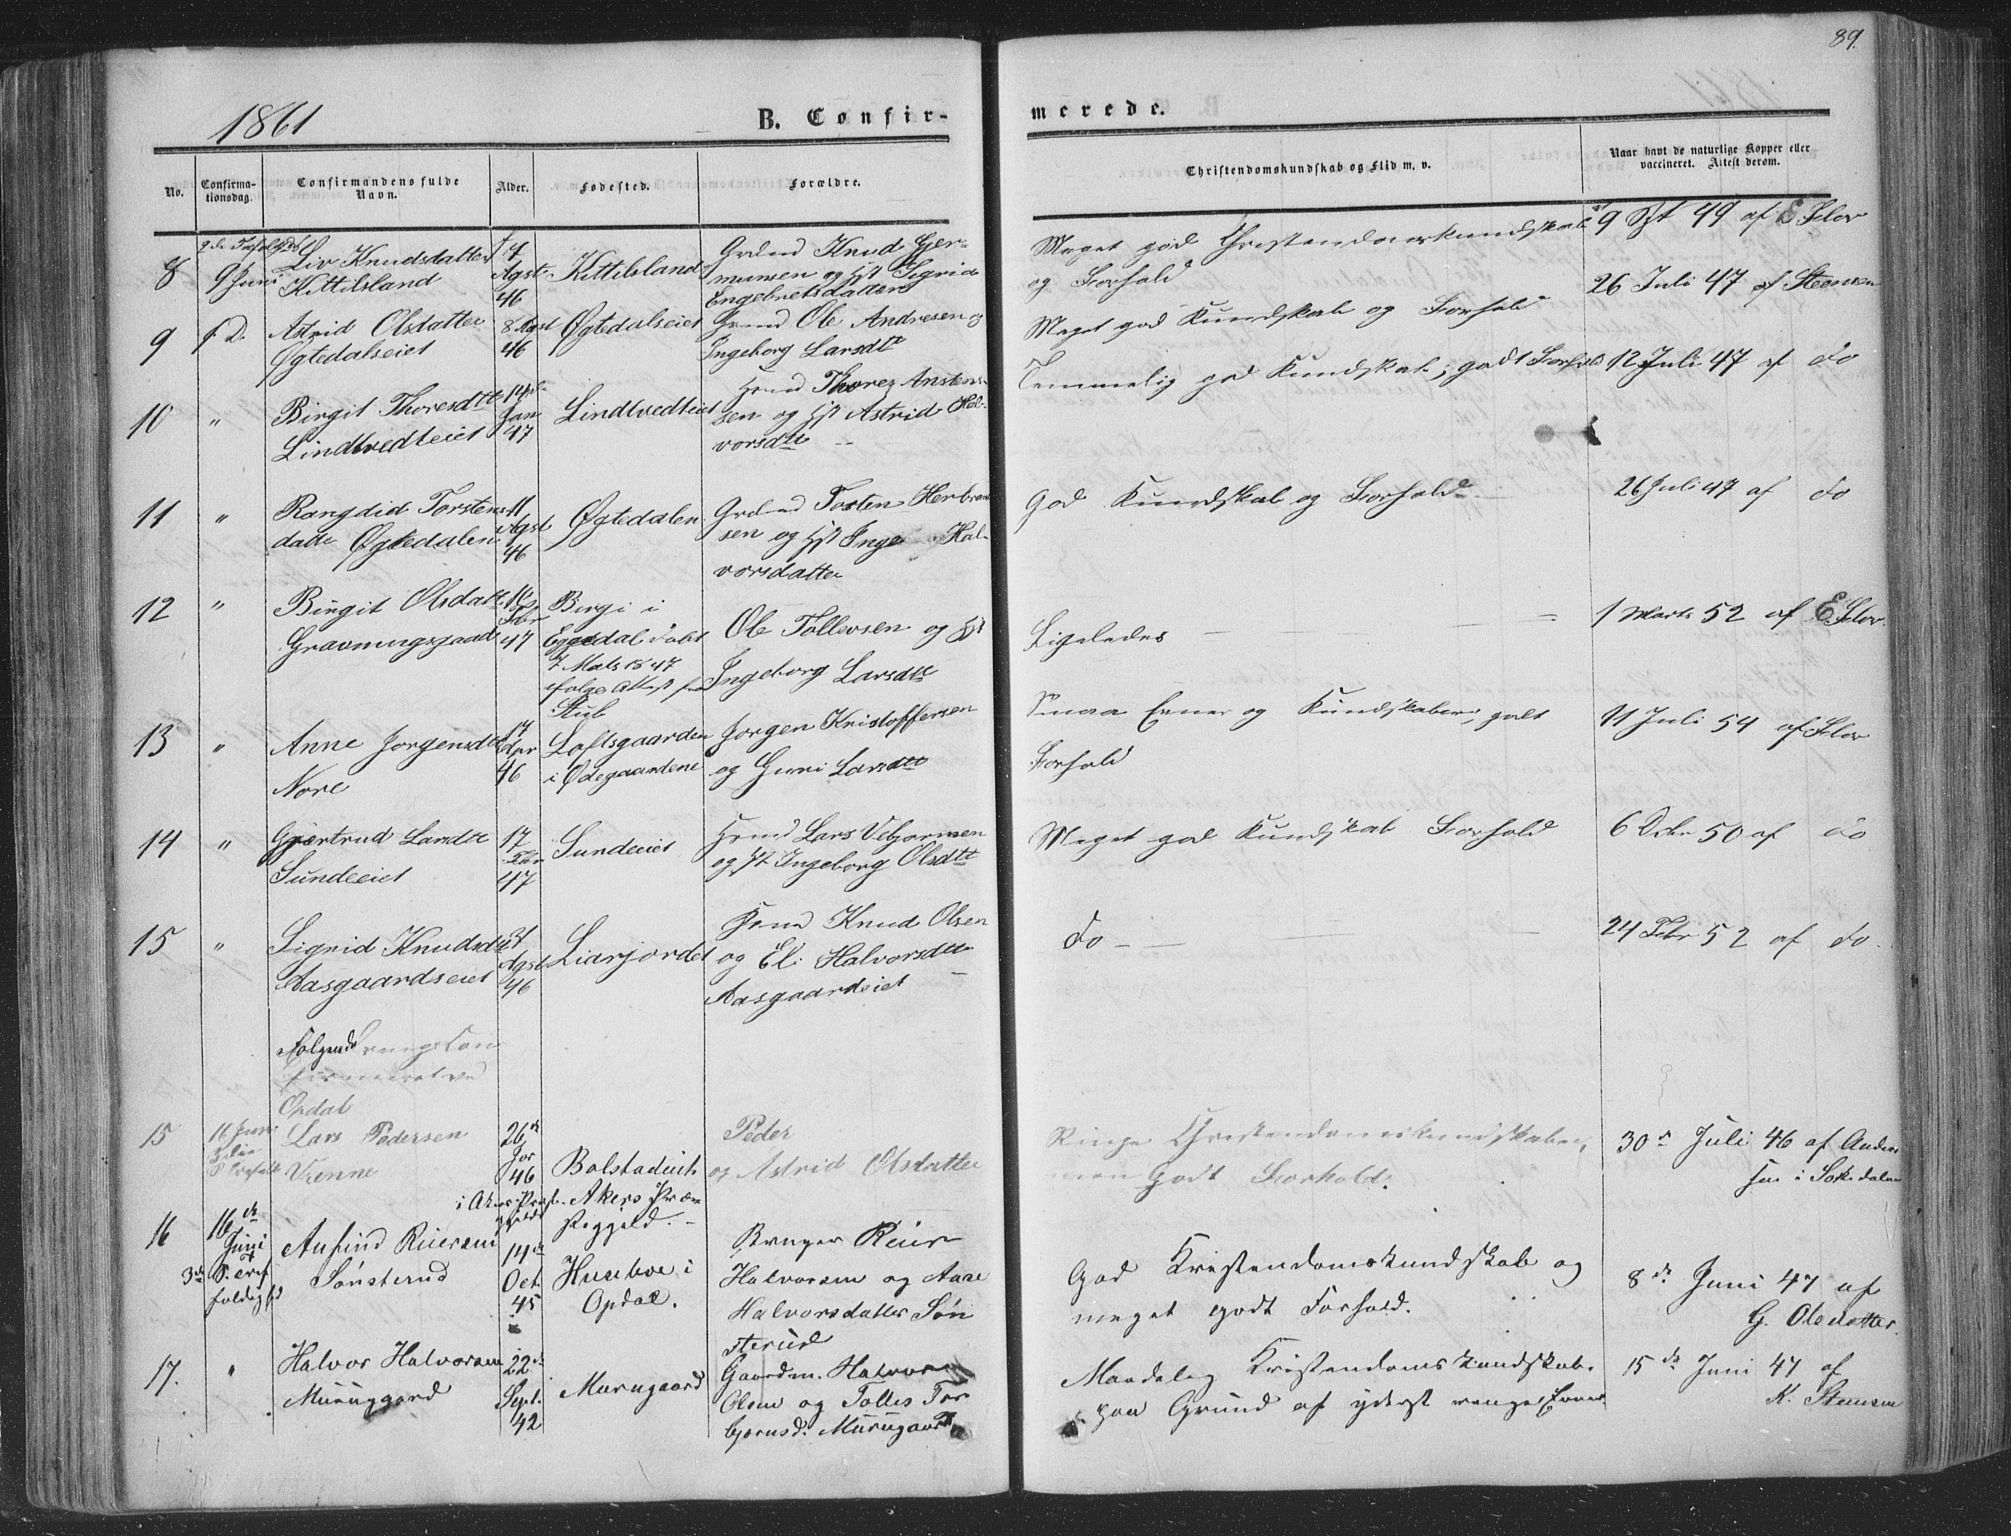 89.
1861
B. Confir-
merede.
No.
Confirma-
tionsdag.
Confirmandens fulde
Navn.
Alder.
Fødested.
Forældre.
Christendomskundskab og Flid m. v.
Naar havt de naturlige Kopper eller
vaccineret. Attest derom.
8
9 Juni
Liv Knudsdatter
Kittilsland
4
Agst
46
Kittilsland
Grdmd Knud Gjer-
mumsen og Hst Sigrid
Engebretsdatter
Meget god Christendomskundskab
og Forhold
9 Spt 49 af E Flor
9
Astrid Olsdatter
Øgtedalseiet
8 Agst
46
Øgtedalseiet
Hmd Ole Andresen og
Ingeborg Larsdtt
Meget god Kundskab og Forhold
26 Juli 47 af Steensen
10
"
Birgit Thoresdtt
Lindtvedteiet
14
Jan
47
Lindtvedteiet
Hmd Thorez Ansten-
sen og Hst Astrid Hal-
vorsdtt
Temmelig god Kundskab, godt Forhold
12 Juli 47 af do
11
"
Rangdid Torstens
datte Øgtedalen
11
Agst
46
Øgtedalen
Grdmd Torsten Herbran
sen og Hst Inge Hal-
vorsdatter
God Kundskab og Forhold
26 Juli 47 af do
12
"
Birgit Olsdatt
Gravningsgaard
Febr
47
Bergi i
Eggedal døbt
7 Mats 1847
ifølge Attest fra
Stub
Ole Tollevsen og Hst
Ingeborg Larsdtt
Ligeledes
1 Marts 52 af E Flor
13
"
Anne Jorgensdtt
Nore
17
Apr
46
Loftsgaarden
i Ødegaardene
Jorgen Kristoffersen
og Guni Larsdtt
Smaa Evner og Kundskaber, godt
Forhold
11 Juli 54 af Flor
14
"
Gjertrud Larsdtt
Sundeeiet
17
Febr
47
Sundeeiet
Hmd Lars Vebjornsen
og Hst Ingeborg Olsdtt
Meget god Kundskab Forhold
6 Decbr 50 af do
15
"
Sigrid Knudsdtt
Aasgaardseiet
31
Agst
46
Liarjordet
Hmd Knud Olsen
og Eli Halvorsdtt
Aasgaardeiet
do
24 Febr 52 af do
Følgende
Opdal
15
16 Juni
Lars Pedersen
Vrenne
26de
46
Bolstadeiet
i Akers Præ
steggjeld.
Peder
og Astrid Olsdatter
Ringe Christendomskundskaber,
men godt Forhold.
30te Juli 46 af Anden
sen i Sørkedalen
16
16de
Juni
3die S. Tref
foldighd
Anfind Reiersen
Sønsterud
14de
Oct.
45
Huusboe i
Opdal.
Bruger Reier
Halvorsen og Aase
Halvorsdatter Søn
sterud
God Kristendomskundskab og
meget godt Forhold.
8de Juni 47 af
G. Olsdatter.
17.
"
Halvor Halvorsen
Muruggard
22de
Sept.
42
Murugaard
Gaardm. Halvor
Olsen og Tolles Tor
bjørnsd. Murugaard
Maadelig Kristendomskundskab
paa Grund af yderst ringe Evner
15de Juni 47 af
K. Steensen